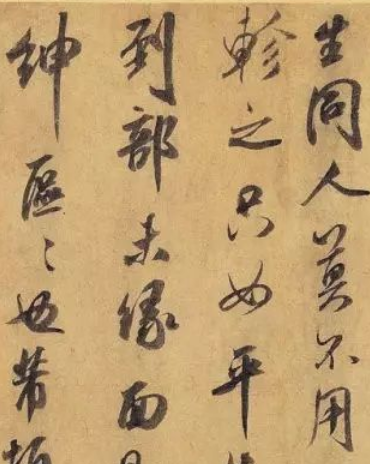 生同人莫不用
軫之只如平
到部未緣面
紳區〻也芾